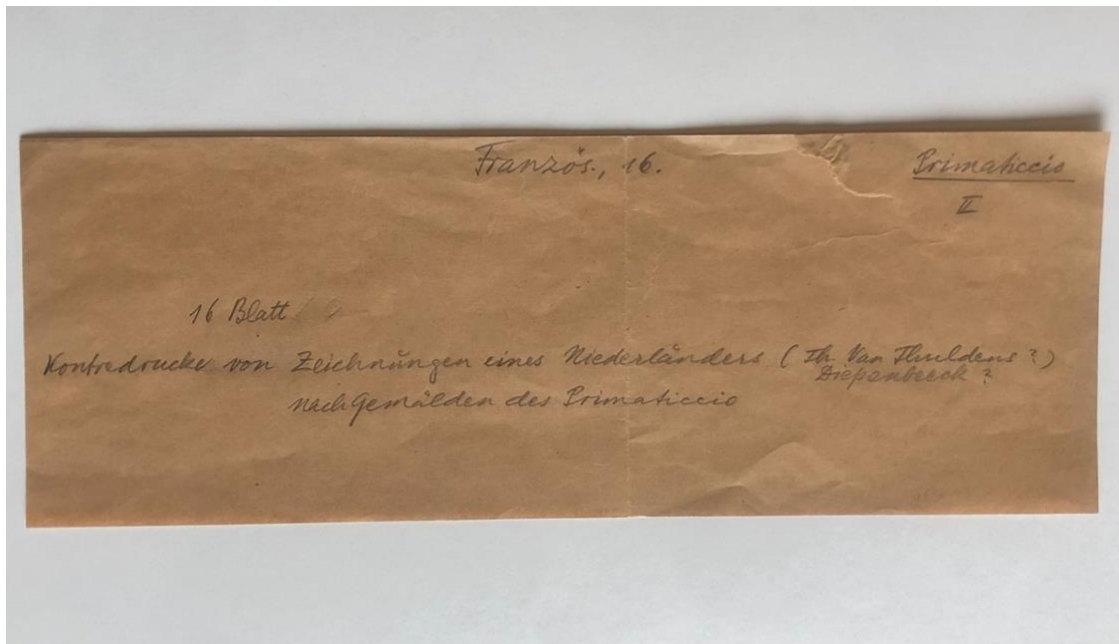 Französ., 16.
Primaticcio
II
16 Blatt
Kontredrucke von Zeichnungen eines Niederländers (Th. Van Thuldens?)
Diepenbeeck?
nach Gemälden des Primaticcio